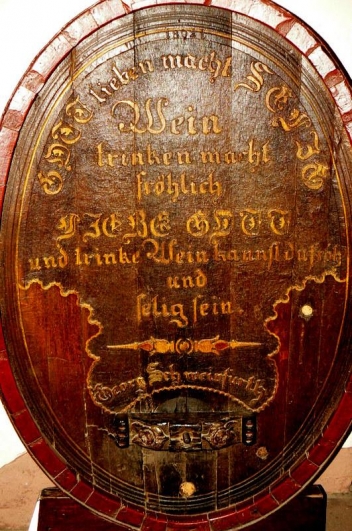 GOTT lieben macht SELIG
Wein
trinken macht
fröhlich
LIEBE GOTT
und trinke Wein kannst du froh
und
selig sein.
Georg Schweinfurth